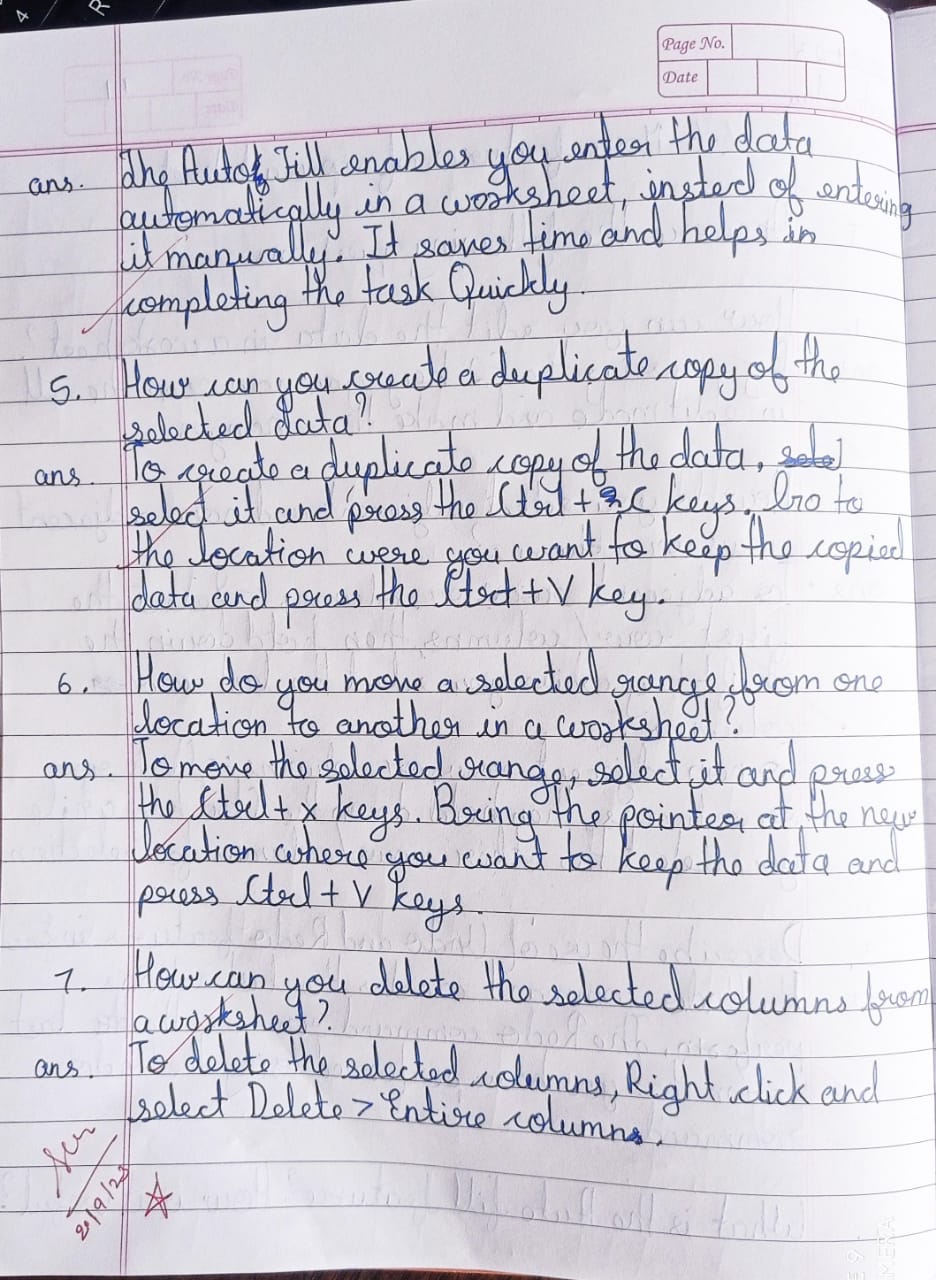 Page No.
Date
ans. The Auto Fill enables you enter the data
automatically in a worksheet, insted of entering
it manually. It saves time and helps in
completing the task Quickly.
5. How can you create a duplicate copy of the
selected data?
ans. To create a duplicate copy of the data,
select it and press the Ctrl + C keys. Go to
the location were you want to keep the copied
data and press the Ctrl + V key.
6. How do you move a selected range from one
location to another in a worksheet?
ans. To move the selected range, select it and press
the Ctrl + x keys. Bring the pointer at the new
location where you want to keep the data and
press Ctrl + V keys.
7. How can you delete the selected columns from
a worksheet?
ans. To delete the selected columns, Right click and
select Delete > Entire columns.